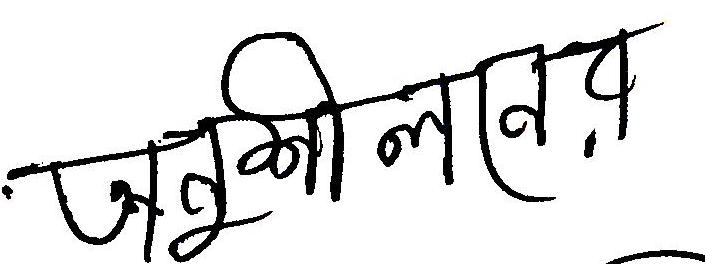 অনুশীলনের